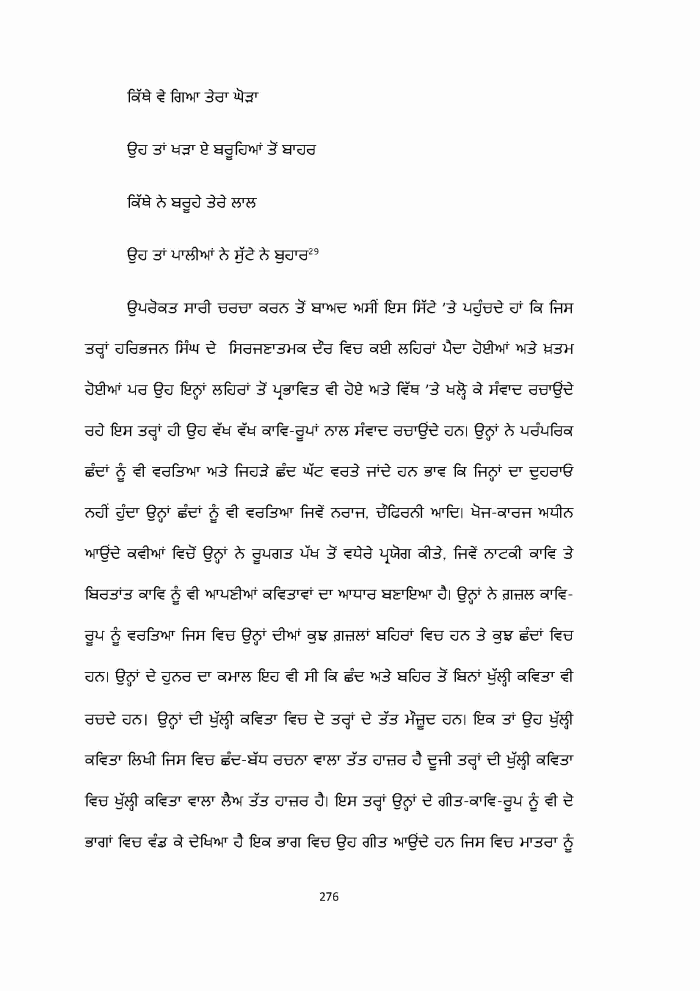 ਕਿੱਥੇ ਵੇ ਗਿਆ ਤੇਰਾ ਘੋੜਾ
ਉਹ ਤਾਂ ਖੜਾ ਏ ਬਰੂਹਿਆਂ ਤੋਂ ਬਾਹਰ
ਕਿੱਥੇ ਨੇ ਬਰੂਹੇ ਤੇਰੇ ਲਾਲ
ਉਹ ਤਾਂ ਪਾਲੀਆਂ ਨੇ ਸੁੱਟੇ ਨੇ ਬੁਹਾਰ²⁹
ਉਪਰੋਕਤ ਸਾਰੀ ਚਰਚਾ ਕਰਨ ਤੋਂ ਬਾਅਦ ਅਸੀਂ ਇਸ ਸਿੱਟੇ ’ਤੇ ਪਹੁੰਚਦੇ ਹਾਂ ਕਿ ਜਿਸ
ਤਰ੍ਹਾਂ ਹਰਿਭਜਨ ਸਿੰਘ ਦੇ ਸਿਰਜਣਾਤਮਕ ਦੌਰ ਵਿਚ ਕਈ ਲਹਿਰਾਂ ਪੈਦਾ ਹੋਈਆਂ ਅਤੇ ਖ਼ਤਮ
ਹੋਈਆਂ ਪਰ ਉਹ ਇਨ੍ਹਾਂ ਲਹਿਰਾਂ ਤੋਂ ਪ੍ਰਭਾਵਿਤ ਵੀ ਹੋਏ ਅਤੇ ਵਿੱਥ ’ਤੇ ਖਲ੍ਹੋ ਕੇ ਸੰਵਾਦ ਰਚਾਉਂਦੇ
ਰਹੇ ਇਸ ਤਰ੍ਹਾਂ ਹੀ ਉਹ ਵੱਖ ਵੱਖ ਕਾਵਿ-ਰੂਪਾਂ ਨਾਲ ਸੰਵਾਦ ਰਚਾਉਂਦੇ ਹਨ। ਉਨ੍ਹਾਂ ਨੇ ਪਰੰਪਰਿਕ
ਛੰਦਾਂ ਨੂੰ ਵੀ ਵਰਤਿਆ ਅਤੇ ਜਿਹੜੇ ਛੰਦ ਘੱਟ ਵਰਤੇ ਜਾਂਦੇ ਹਨ ਭਾਵ ਕਿ ਜਿਨ੍ਹਾਂ ਦਾ ਦੁਹਰਾਓ
ਨਹੀਂ ਹੁੰਦਾ ਉਨ੍ਹਾਂ ਛੰਦਾਂ ਨੂੰ ਵੀ ਵਰਤਿਆ ਜਿਵੇਂ ਨਰਾਜ, ਚੌਫਿਰਨੀ ਆਦਿ। ਖੋਜ-ਕਾਰਜ ਅਧੀਨ
ਆਉਂਦੇ ਕਵੀਆਂ ਵਿਚੋਂ ਉਨ੍ਹਾਂ ਨੇ ਰੂਪਗਤ ਪੱਖ ਤੋਂ ਵਧੇਰੇ ਪ੍ਰਯੋਗ ਕੀਤੇ, ਜਿਵੇਂ ਨਾਟਕੀ ਕਾਵਿ ਤੇ
ਬਿਰਤਾਂਤ ਕਾਵਿ ਨੂੰ ਵੀ ਆਪਣੀਆਂ ਕਵਿਤਾਵਾਂ ਦਾ ਆਧਾਰ ਬਣਾਇਆ ਹੈ। ਉਨ੍ਹਾਂ ਨੇ ਗ਼ਜ਼ਲ ਕਾਵਿ-
ਰੂਪ ਨੂੰ ਵਰਤਿਆ ਜਿਸ ਵਿਚ ਉਨ੍ਹਾਂ ਦੀਆਂ ਕੁਝ ਗ਼ਜ਼ਲਾਂ ਬਹਿਰਾਂ ਵਿਚ ਹਨ ਤੇ ਕੁਝ ਛੰਦਾਂ ਵਿਚ
ਹਨ। ਉਨ੍ਹਾਂ ਦੇ ਹੁਨਰ ਦਾ ਕਮਾਲ ਇਹ ਵੀ ਸੀ ਕਿ ਛੰਦ ਅਤੇ ਬਹਿਰ ਤੋਂ ਬਿਨਾਂ ਖੁੱਲ੍ਹੀ ਕਵਿਤਾ ਵੀ
ਰਚਦੇ ਹਨ। ਉਨ੍ਹਾਂ ਦੀ ਖੁੱਲ੍ਹੀ ਕਵਿਤਾ ਵਿਚ ਦੋ ਤਰ੍ਹਾਂ ਦੇ ਤੱਤ ਮੌਜ਼ੂਦ ਹਨ। ਇਕ ਤਾਂ ਉਹ ਖੁੱਲ੍ਹੀ
ਕਵਿਤਾ ਲਿਖੀ ਜਿਸ ਵਿਚ ਛੰਦ-ਬੱਧ ਰਚਨਾ ਵਾਲਾ ਤੱਤ ਹਾਜ਼ਰ ਹੈ ਦੂਜੀ ਤਰ੍ਹਾਂ ਦੀ ਖੁੱਲ੍ਹੀ ਕਵਿਤਾ
ਵਿਚ ਖੁੱਲ੍ਹੀ ਕਵਿਤਾ ਵਾਲਾ ਲੈਅ ਤੱਤ ਹਾਜ਼ਰ ਹੈ। ਇਸ ਤਰ੍ਹਾਂ ਉਨ੍ਹਾਂ ਦੇ ਗੀਤ-ਕਾਵਿ-ਰੂਪ ਨੂੰ ਵੀ ਦੋ
ਭਾਗਾਂ ਵਿਚ ਵੰਡ ਕੇ ਦੇਖਿਆ ਹੈ ਇਕ ਭਾਗ ਵਿਚ ਉਹ ਗੀਤ ਆਉਂਦੇ ਹਨ ਜਿਸ ਵਿਚ ਮਾਤਰਾ ਨੂੰ
276